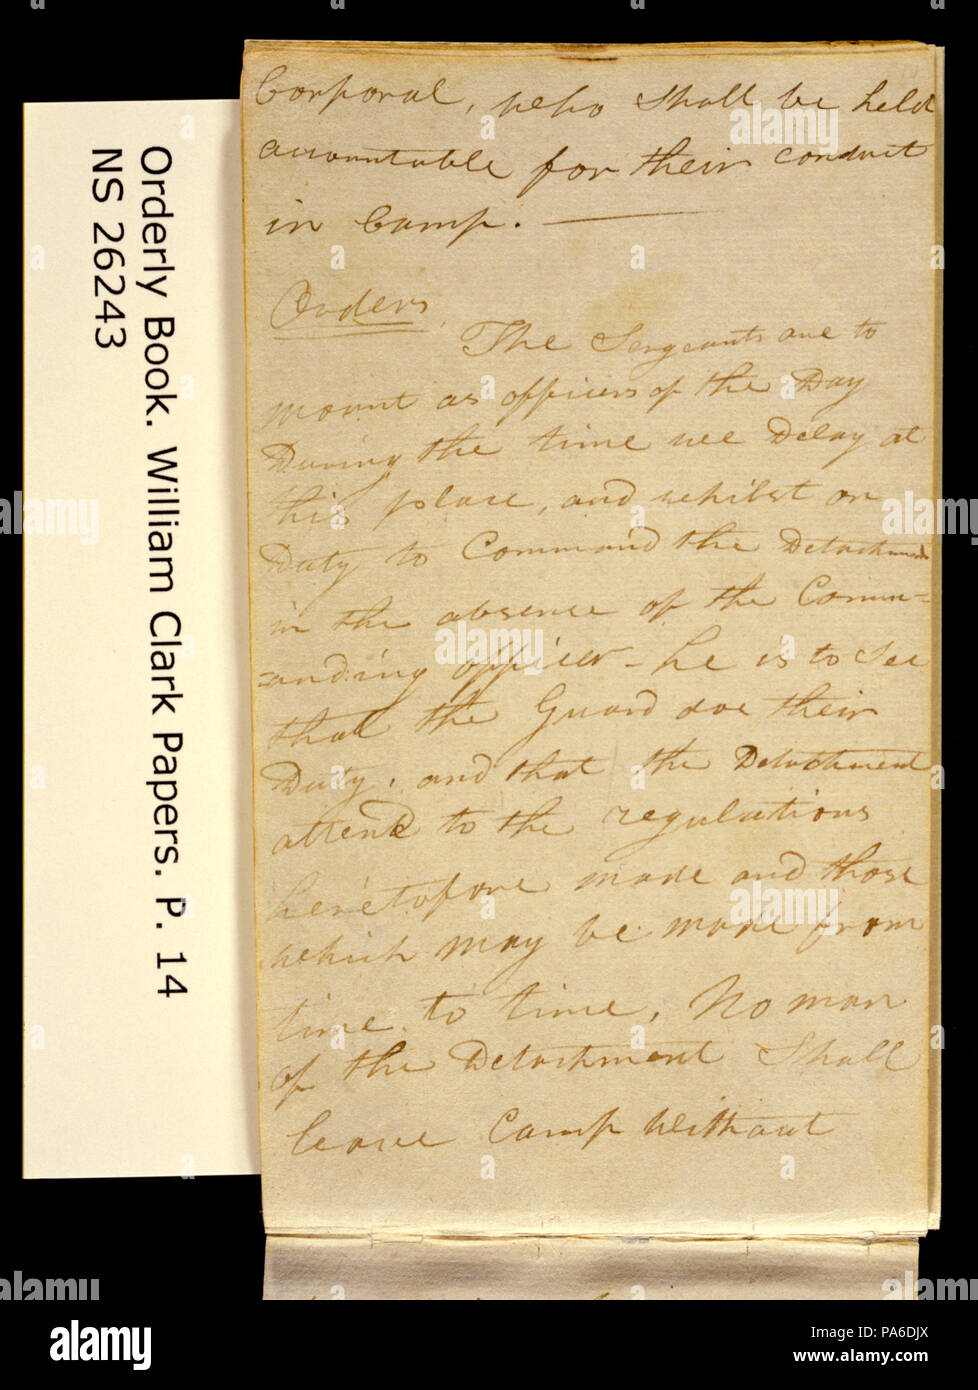 Corporal, who Shall be held
accountable for their conduct
in Camp. ———
Orders.
The Sergeants are to
mount as officers of the Day
During the time we Delay at
this place, and whilst on
Duty to Command the Detachment
in the absence of the Comm=
=anding officer – he is to See
that the Guard doe their
Duty, and that the Detachment
attend to the regulations
heretofore made and those
which may be made from
time to time, No man
of the Detachment Shall
leave Camp without
Orderly Book. William Clark Papers. P. 14
NS 26243
alamy
alamy
Image ID: PA6DJX
www.alamy.com